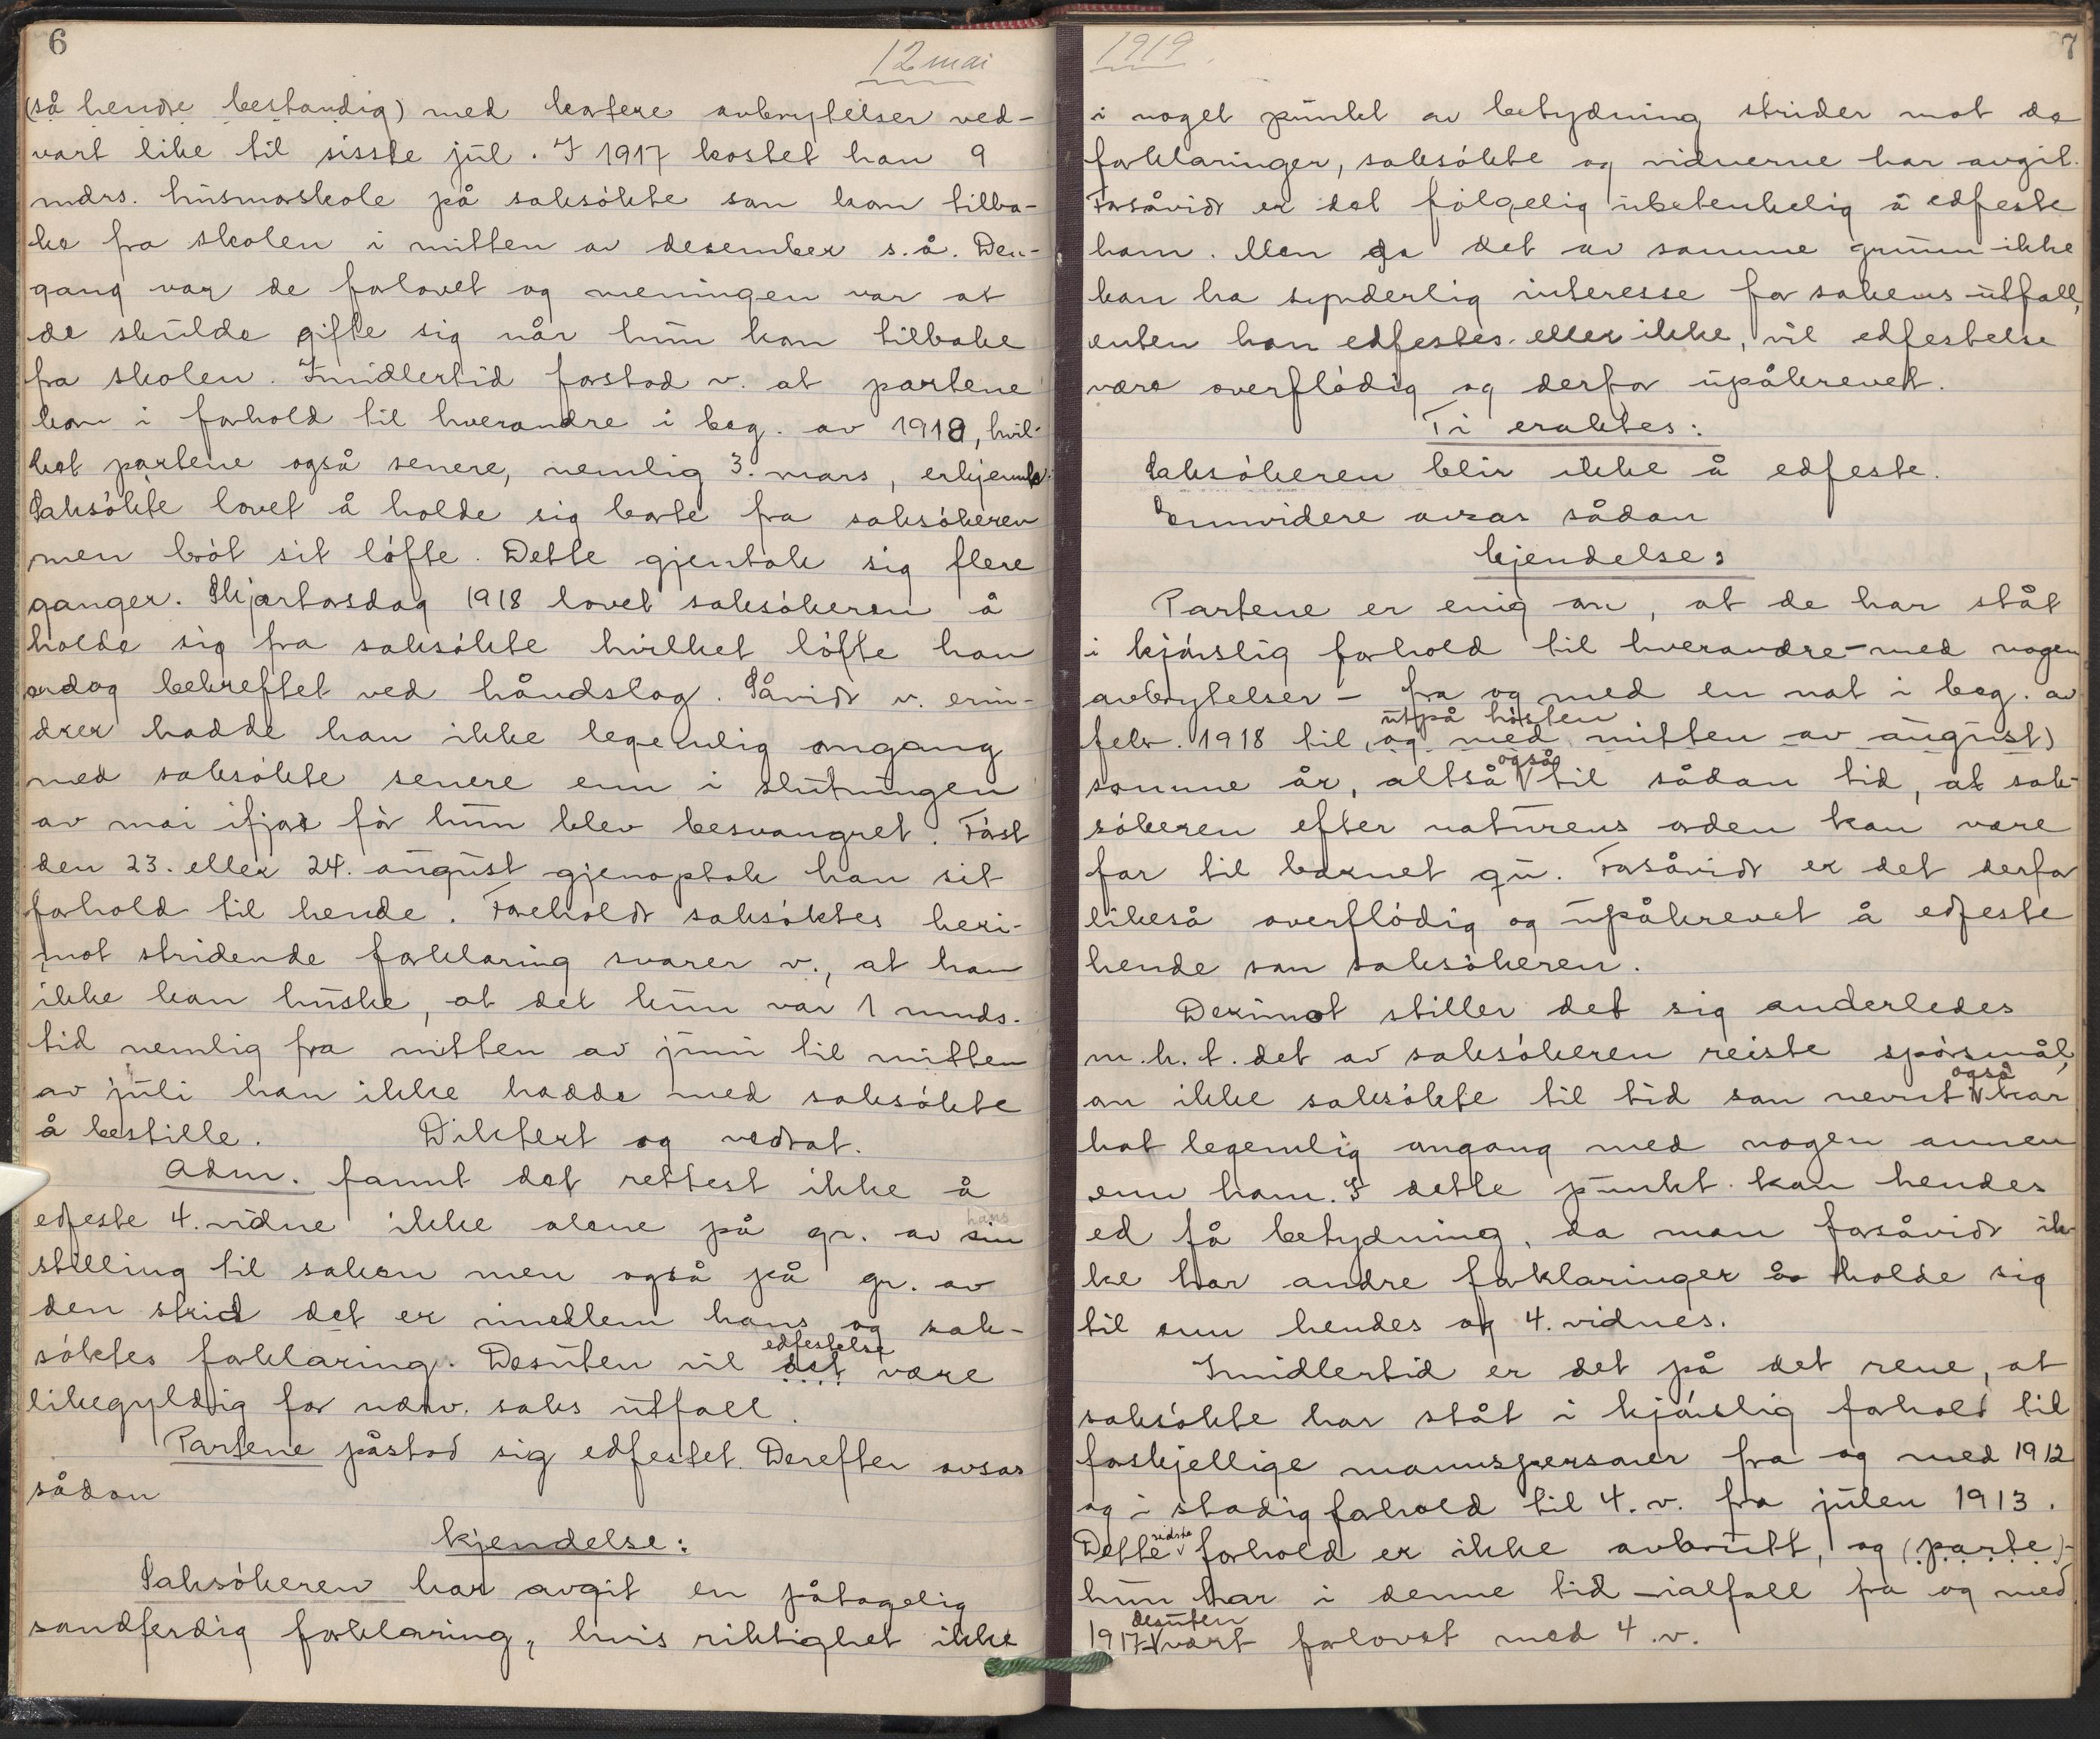 6
12 mai
(så hendte bestandig) med kortere avbrytelser ved-
vart like til sisste jul. I 1917 kostet han 9
mdrs. husmorskole på saksøkte som kom tilba-
ke fra skolen i mitten av desember s.å. Den-
gang var de forlovet og meningen var at
de skulde gifte sig når hun kom tilbake
fra skolen. Imidlertid forstod v. at partene
kom i forhold til hverandre i beg. av 1918, hvil-
ket partene også senere, nemlig 3. mars, erkjente.
Saksøkte lovet å holde sig borte fra saksøkeren
men brøt sit løfte. Dette gjentok sig flere
ganger. Skjærtorsdag 1918 lovet saksøkeren å
holde sig fra saksøkte hvilket løfte han
endog bekreftet ved håndslag. Såvidt v. erin-
drer hadde han ikke legemlig omgang
med saksøkte senere enn i slutningen
av mai ifjor før hun blev besvangret. Først
den 23. eller 24. august gjenoptok han sit
forhold til hende. Foreholdt saksøktes heri-
mot stridende forklaring svarer v., at han
ikke kan huske, at det kun var 1 mnds.
tid nemlig fra mitten av juni til mitten
av juli han ikke hadde med saksøkte
å bestille. Diktert og vedtat.
Adm. fannt det rettest ikke å
edfeste 4. vidne ikke alene på gr. av sin hans
stilling til saken men også på gr. av
den strid det er imellem hans og sak-
søktes forklaring. Desuten vil det edfestelse være
likegyldig for nærv. saks utfall.
Partene påstod sig edfestet. Derefter avsas
sådan
kjendelse:
Saksøkeren har avgit en påtagelig
sandferdig forklaring, hvis riktighet ikke
1919.
7
i noget punkt av betydning strider mot de
forklaringer, saksøkte og vidnerne har avgit.
Forsåvidt er det følgelig ubetenkelig å edfeste
ham. Men da det av samme grunn ikke
kan ha synderlig interesse for sakens utfall,
enten han edfestes eller ikke, vil edfestelse
være overflødig og derfor upåkrevet.
Ti eraktes:
Saksøkeren blir ikke å edfeste.
Emnvidere avsas sådan
kjendelse:
Partene er enig om, at de har ståt
i kjønslig forhold til hverandre - med nogen
avbrytelser - fra og med en nat i beg. av
utpå høsten
febr. 1918 til (og med mitten av august)
samme år, altså også til sådan tid, at sak-
søkeren efter naturens orden kan være
far til barnet qu. Forsåvidt er det derfor
likeså overflødig og upåkrevet å edfeste
hende som saksøkeren.
Derimot stiller det sig anderledes
m.h.t. det av saksøkeren reiste spørsmål,
om ikke saksøkte til tid som nevnt også har
hat legemlig omgang med nogen annen
enn ham. I dette punkt kan hendes
ed få betydning, da man forsåvidt ik-
ke har andre forklaringer å holde sig
til enn hendes og 4. vidnes.
Imidlertid er det på det rene, at
saksøkte har ståt i kjønslig forhold til
forskjellige mannspersoner fra og med 1912
og i stadig forhold til 4. v. fra julen 1913.
Dette sidste forhold er ikke avbrutt, og (parte)-
hun har i denne tid - ialfall fra og med
1917 - desuten vært forlovet med 4. v.